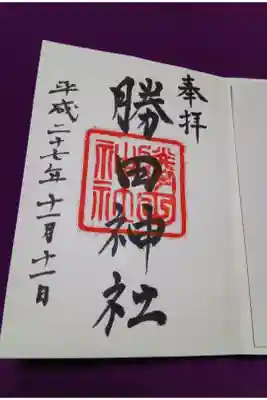 奉拝
勝田神社
平成二十七年十一月十一日